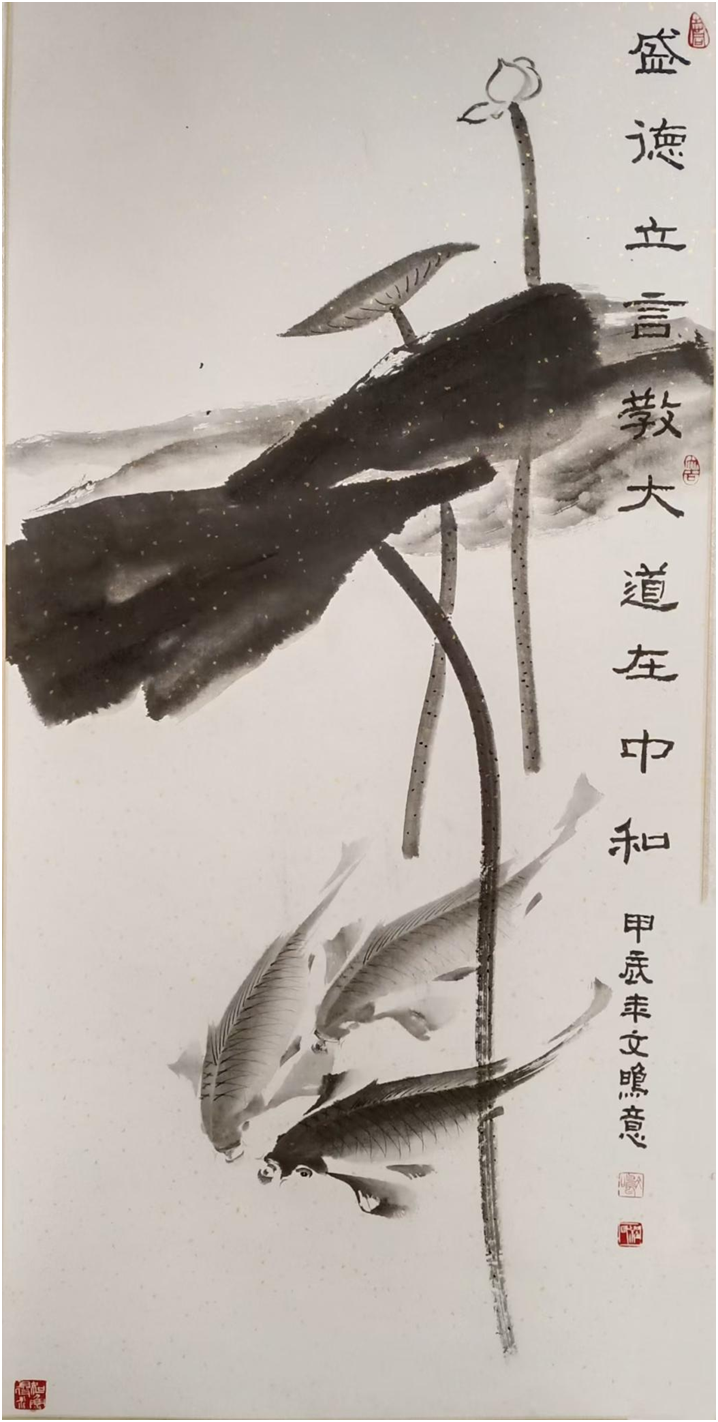 盛德立言教大道在中和
甲年文意